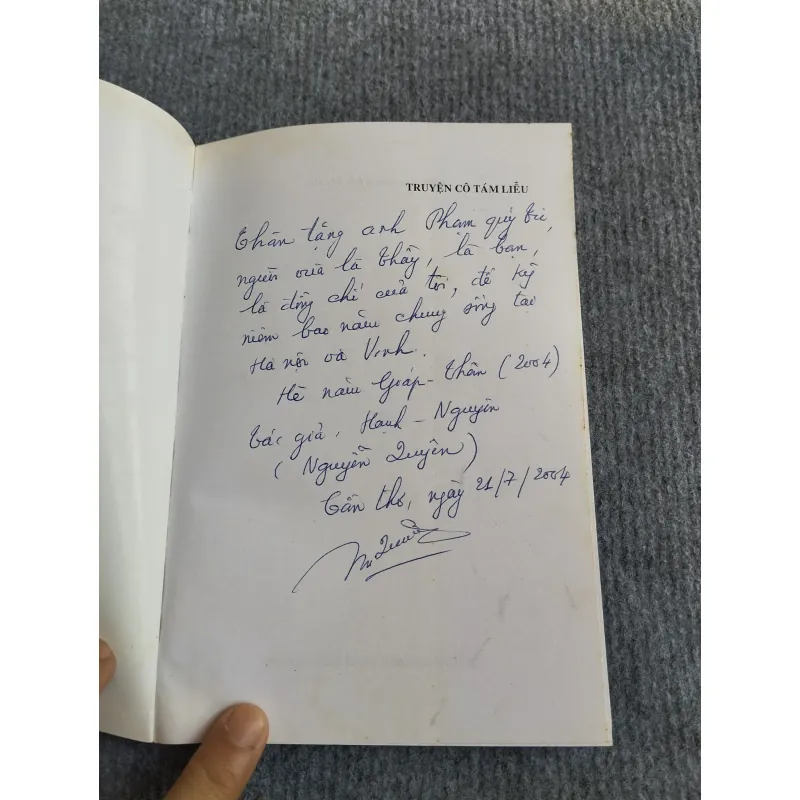 TRUYỆN CÔ TÁM LIỄU
Thân tặng anh Phạm quý
người vừa là thầy, là bạn,
là đồng chí của tôi, để kỷ
niệm bao năm chung sống tại
Hà nội và Vinh.
Hè năm Giáp-Thân (2004)
Tác giả, Hạnh-Nguyên
(Nguyễn Quyên)
Cần thơ, ngày 21/7/2004